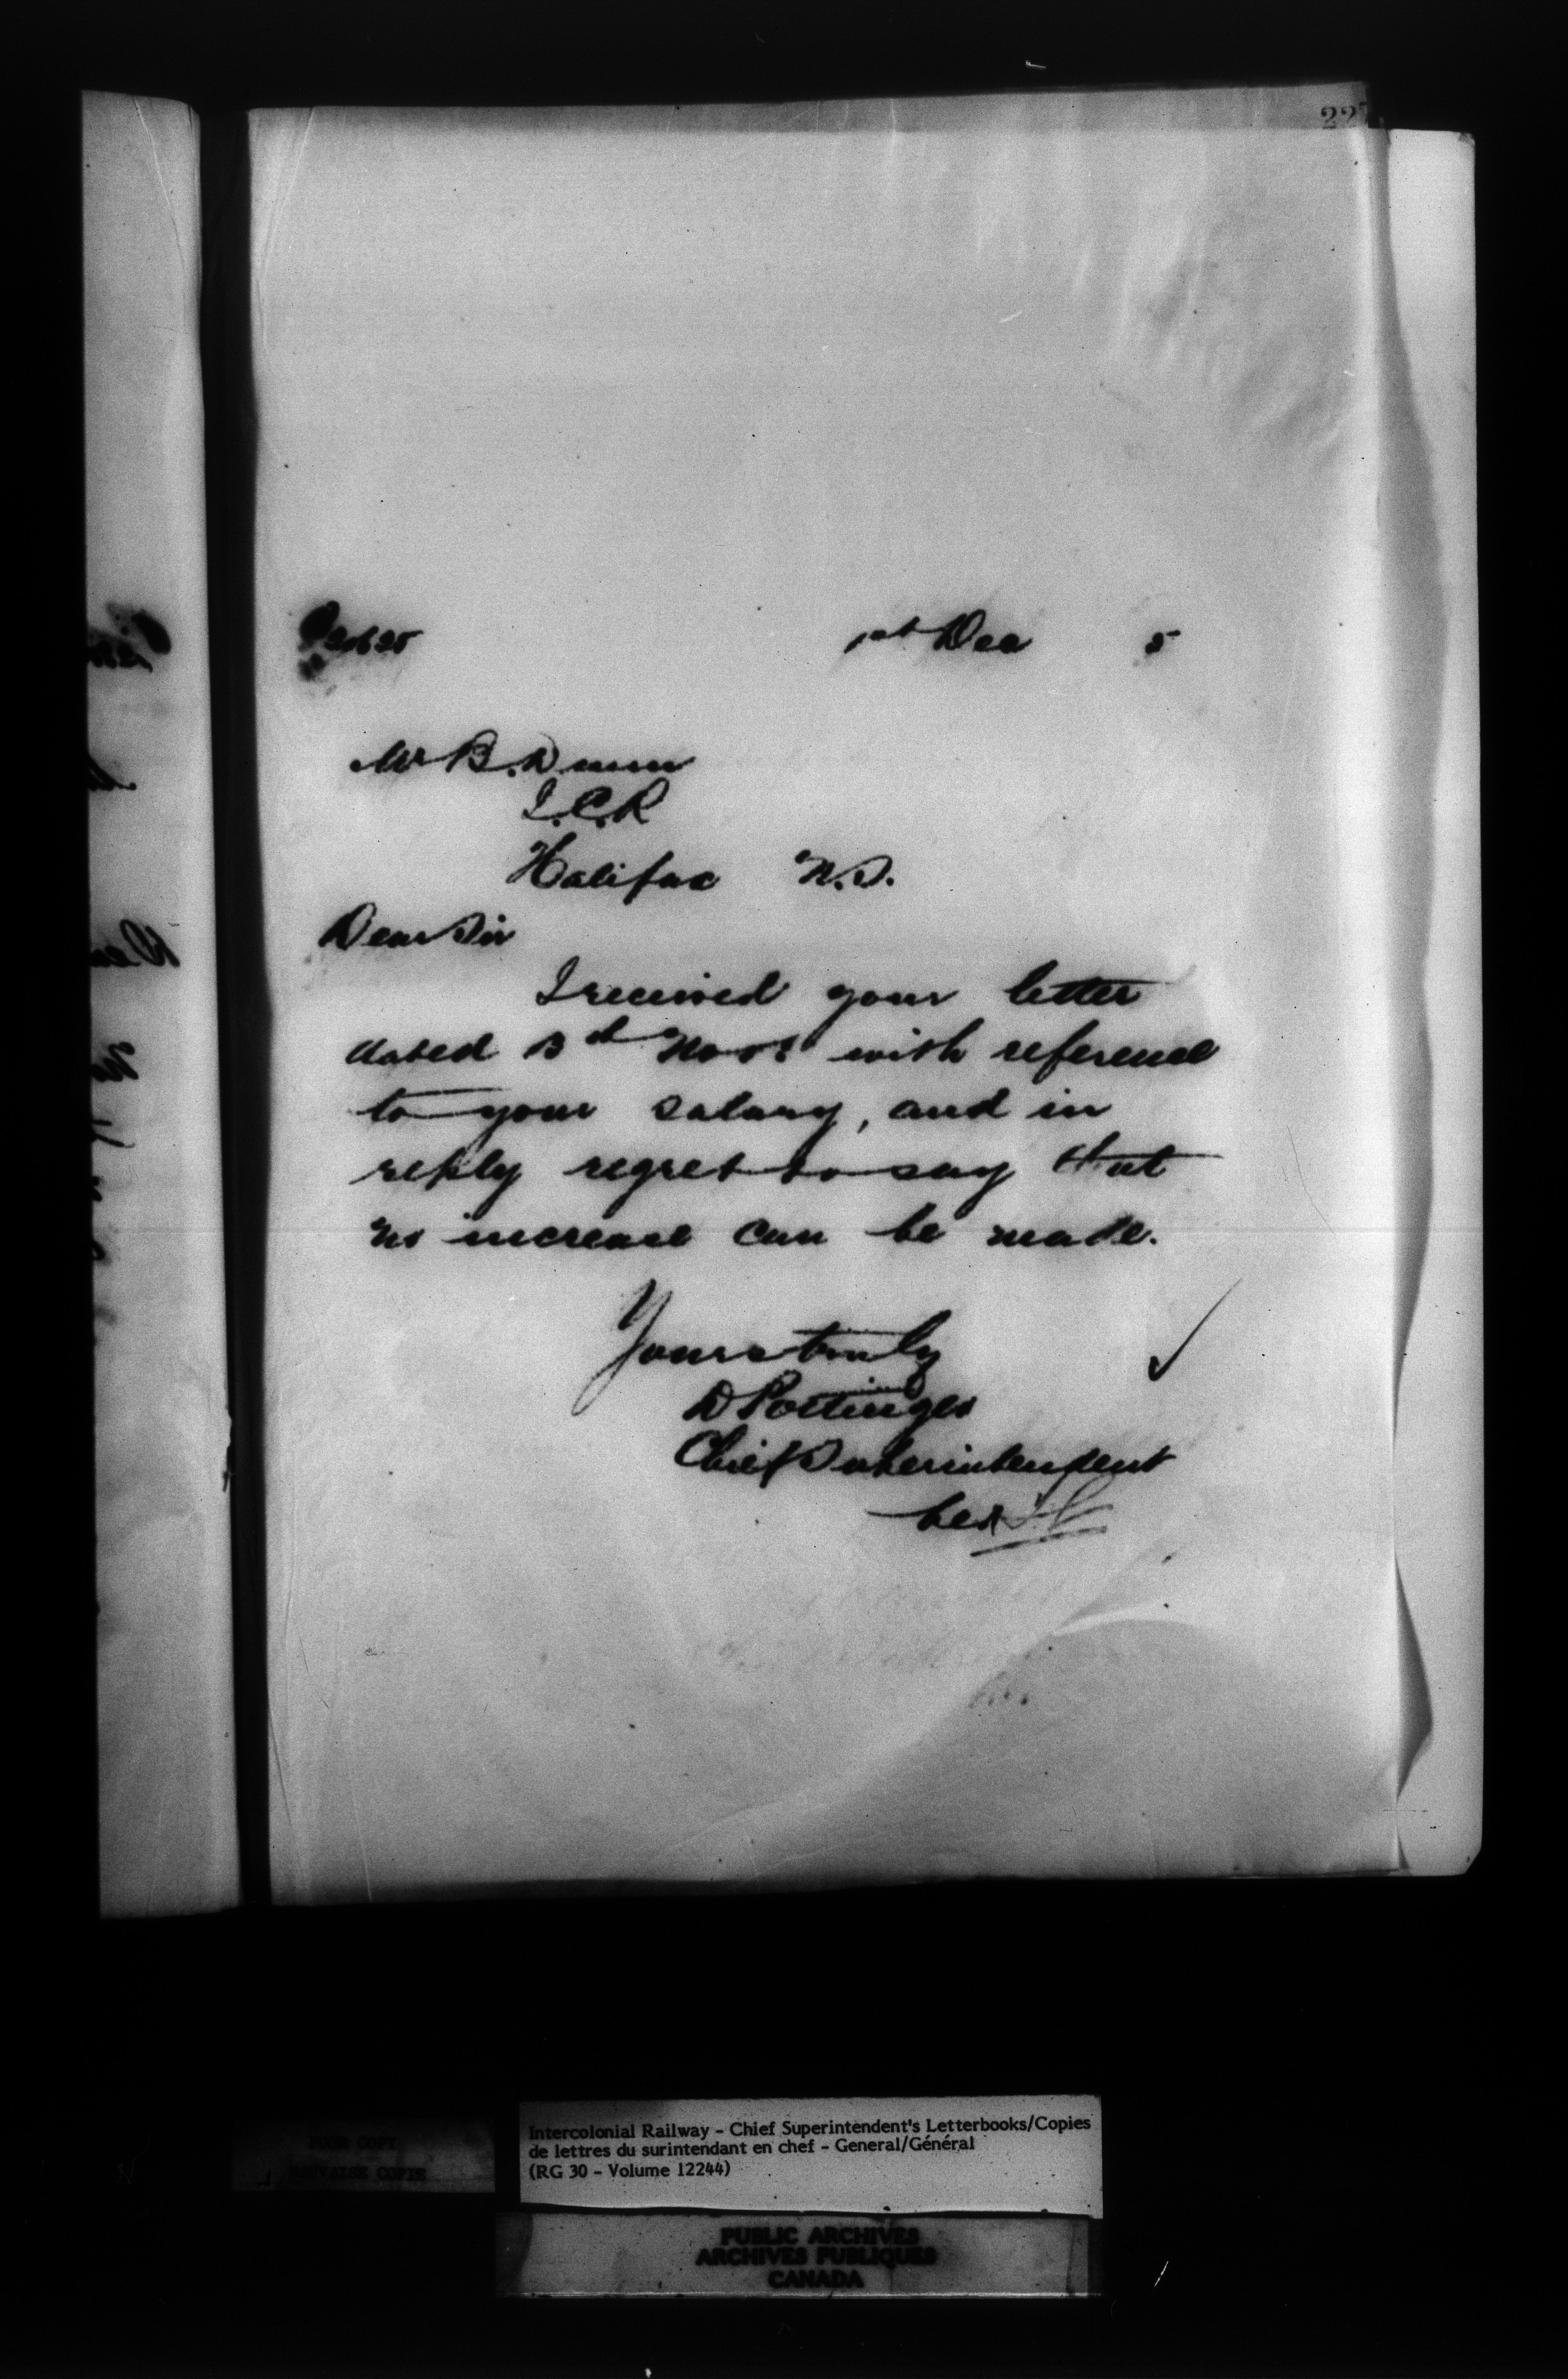 1st Dec 5
Mr B. Dunn
I.C.R
Halifax N.S.
Dear Sir
I received your letter
dated 3d Novr with reference
to your salary, and in
reply regret to say that
no increase can be made.
Yours truly
D Pottinger
Chief Superintendent
Intercolonial Railway - Chief Superintendent's Letterbooks/Copies
de lettres du surintendant en chef - General/Général
(RG 30 - Volume 12244)
POOR COPY
MAUVAISE COPIE
PUBLIC ARCHIVES
ARCHIVES PUBLIQUES
CANADA